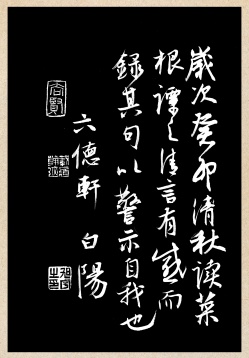 歲次癸卯清秋讀菜
根譚之清言有感而
錄其句以警示自我也
六德軒 白陽